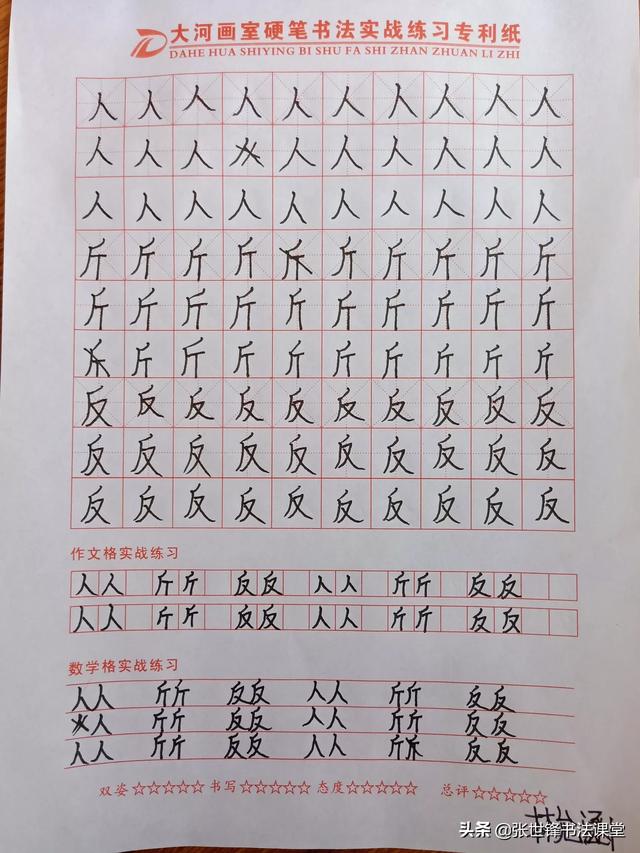 大河画室硬笔书法实战练习专利纸
DAHE HUA SHIYING BI SHU FA SHI ZHAN ZHUAN LI ZHI
人人人人人人人人人人
人人人人人人人人人
人人人人人人人人人人
斤斤斤斤斤斤斤斤斤
斤斤斤斤斤斤斤斤斤斤
斤斤斤斤斤斤斤斤斤
反反反反反反反反反反
反反反反反反反反反反
反反反反反反反反反反
作文格实战练习
人人 斤斤 反反 人人 斤斤 反反
人人 斤斤 反反 人人 斤斤 反反
数学格实战练习
人人 斤斤 反反 人人 斤斤 反反
人 斤斤 反反 人人 斤斤 反反
人人 斤斤 反反 人人 斤 反反
双姿☆☆☆☆☆ 书写☆☆☆☆☆ 态度☆☆☆☆☆ 总评☆☆☆☆☆
头条 @张世锋书法课堂